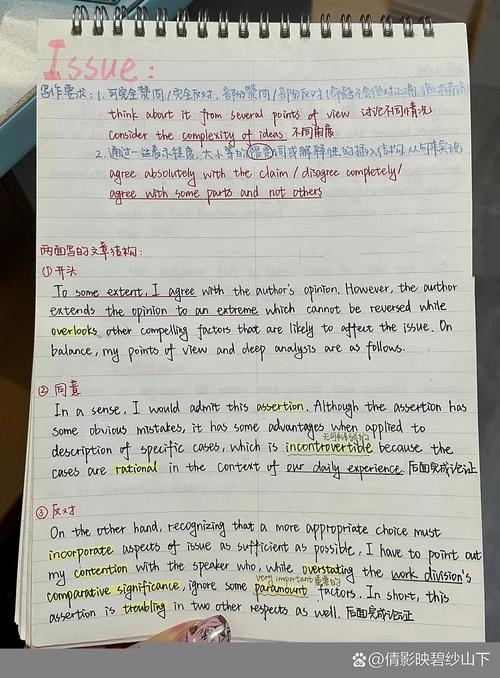 Issue:
写作要求: 1. 可完全赞同/完全反对, 部分赞同/部分反对
think about it from several points of view 讨论不同情况
Consider the complexity of ideas 不同角度
2. 通过一些表示程度、大小等的限定词或解释性的插入结构
agree absolutely with the claim / disagree completely/
agree with some parts and not others
两面写的文章结构:
① 开头
To some extent, I agree with the author's opinion. However, the author
extends the opinion to an extreme which cannot be reversed while
overlooks other compelling factors that are likely to affect the issue. On
balance, my points of view and deep analysis are as follows.
② 同意
In a sense, I would admit this assertion. Although the assertion has
some obvious mistakes, it has some advantages when applied to
description of specific cases, which is incontrovertible because the
cases are rational in the context of our daily experience. 后面完成论证
③ 反对
On the other hand, recognizing that a more appropriate choice must
incorporate aspects of issue as sufficient as possible, I have to point out
my contention with the speaker who, while overstating the work division's
very important 重要的
comparative significance, ignore some paramount factors. In short, this
assertion is troubling in two other respects as well. 后面完成论证
倩影映碧纱山下